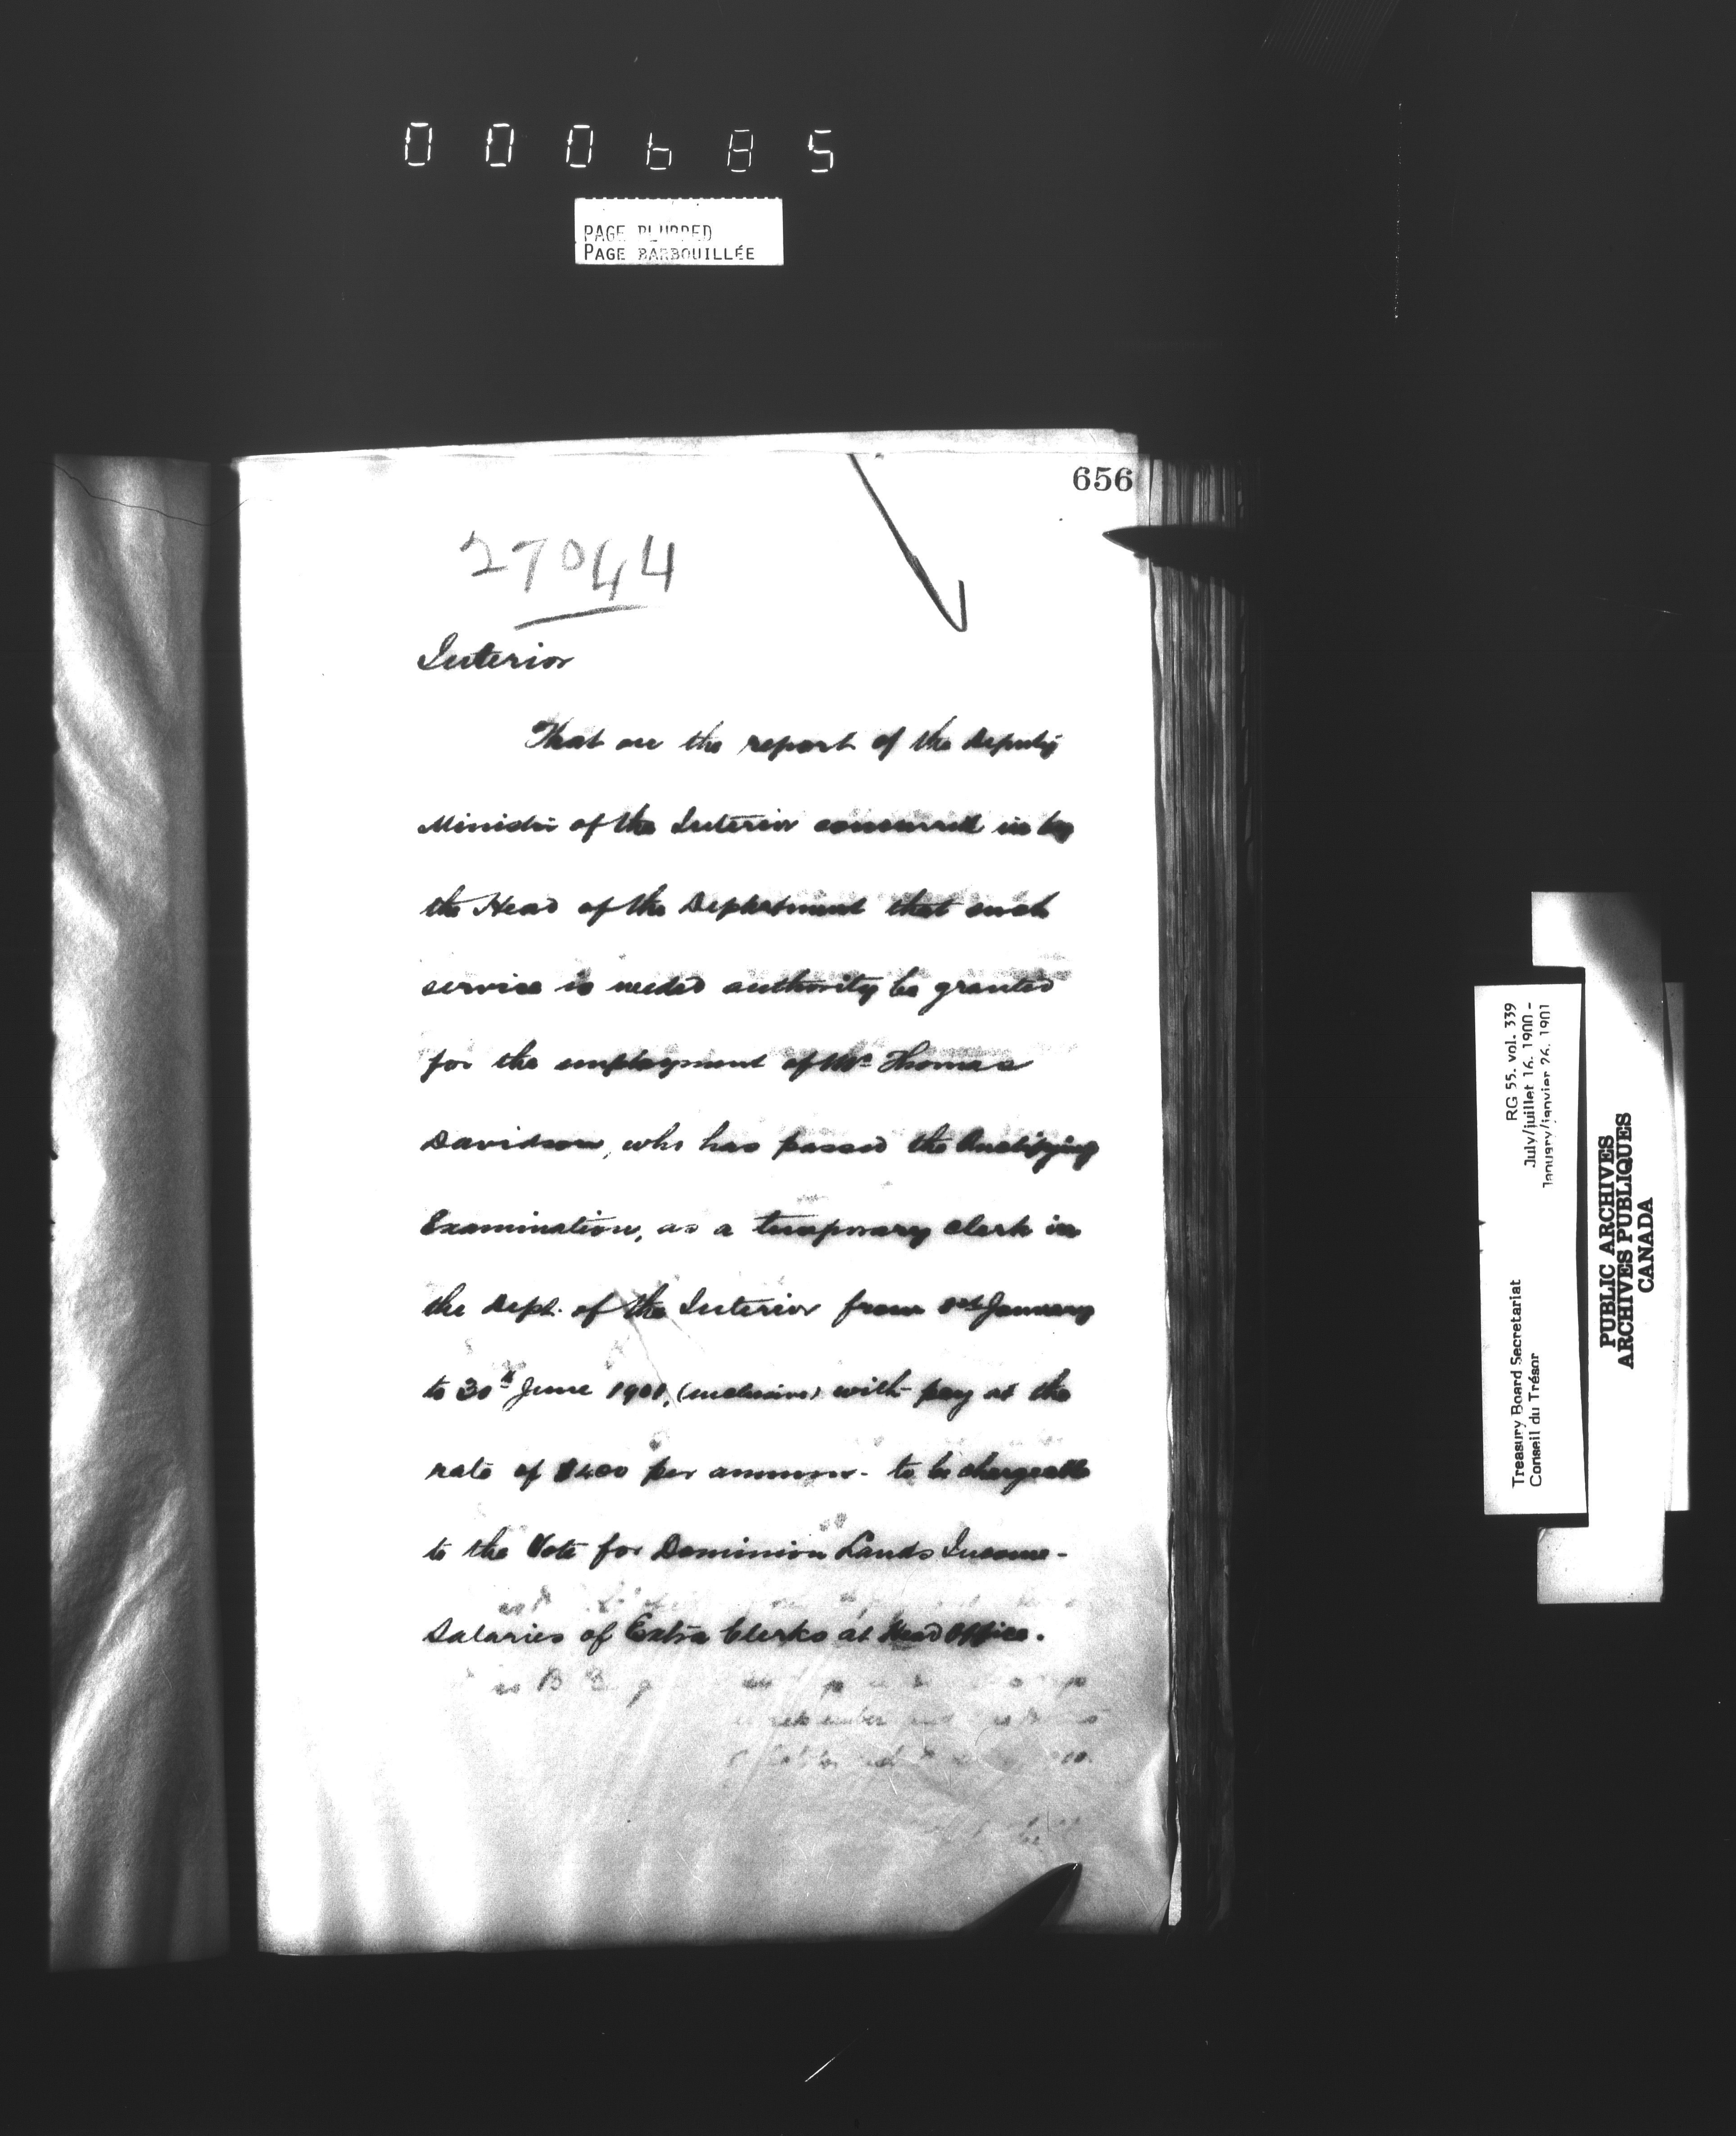 000685
PAGE BLURRED
PAGE BARBOUILLÉE
656
27044
Interior
That on the report of the Deputy
Minister of the Interior concurred in by
the Head of the Department that such
service is needed authority be granted
for the employment of Mr Thomas
Davidson, who has passed the Qualifying
Examination, as a temporary clerk in
the Dept. of the Interior from January
to 30th June 1901, (inclusive) with pay at the
rate of $400 per annum - to be chargeable
to the Vote for Dominion Lands Income -
Salaries of Extra Clerks at Head Office.
RG 55, vol. 339
July/juillet 16, 1900 -
January/janvier 26, 1901
Treasury Board Secretariat
Conseil du Trésor
PUBLIC ARCHIVES
ARCHIVES PUBLIQUES
CANADA